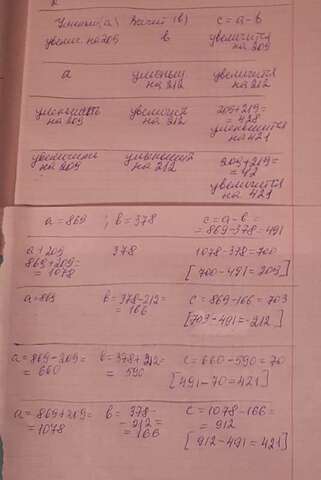 Уменьш(а) Вычит (в) c = a - в
увелич. на 209 в увеличится на 209
a уменьш на 212 увеличится на 212
уменьшить на 209 увеличит на 212 209+219= = 428 уменьшится на 421
увеличить на 209 уменьшит на 212 209+219= = 42 увеличится на 421
a = 869 ; в = 378 c = a - в = = 869-378 = 491
a + 209 378 1078-378 = 700
869+209= = 1078 [700-491 = 209]
a = 869 в = 378-212= = 166 c = 869-166 = 703
[703-491 = 212]
a = 869-209= = 660 в = 378+212= = 590 c = 660-590 = 70
[491-70 = 421]
a = 869+209= = 1078 в = 378- -212= = 166 c = 1078-166= = 912
[912-491 = 421]